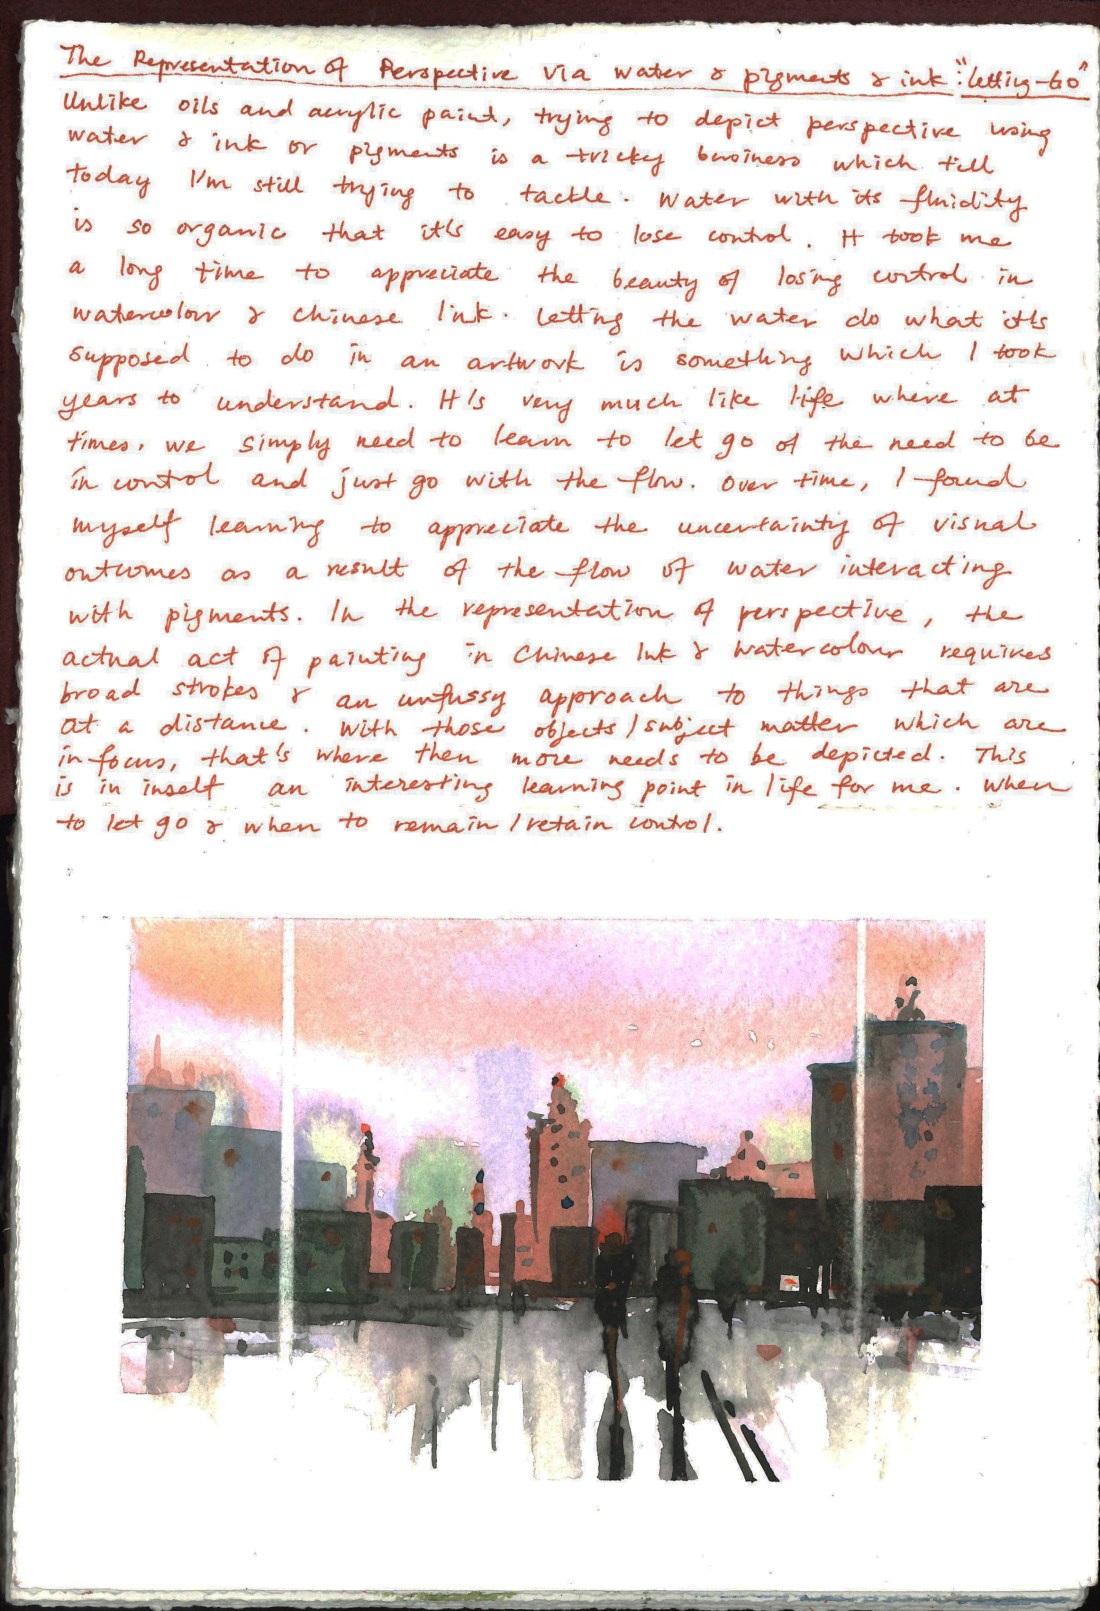 The Representation of Perspective via water & pigments & ink: "letting-go"
Unlike oils and acrylic paint, trying to depict perspective using
water & ink or pigments is a tricky business which till
today I'm still trying to tackle. Water with its fluidity
is so organic that it's easy to lose control. It took me
a long time to appreciate the beauty of losing control in
watercolour & chinese Ink. Letting the water do what it's
supposed to do in an artwork is something which I took
years to understand. It's very much like life where at
times, we simply need to learn to let go of the need to be
in control and just go with the flow. Over time, I found
myself learning to appreciate the uncertainty of visual
outcomes as a result of the flow of water interacting
with pigments. In the representation of perspective, the
actual act of painting in Chinese Ink & Watercolour requires
broad strokes & an unfussy approach to things that are
at a distance. With those objects/subject matter which are
in focus, that's where then more needs to be depicted. This
is in inself an interesting learning point in life for me. When
to let go & when to remain/retain control.